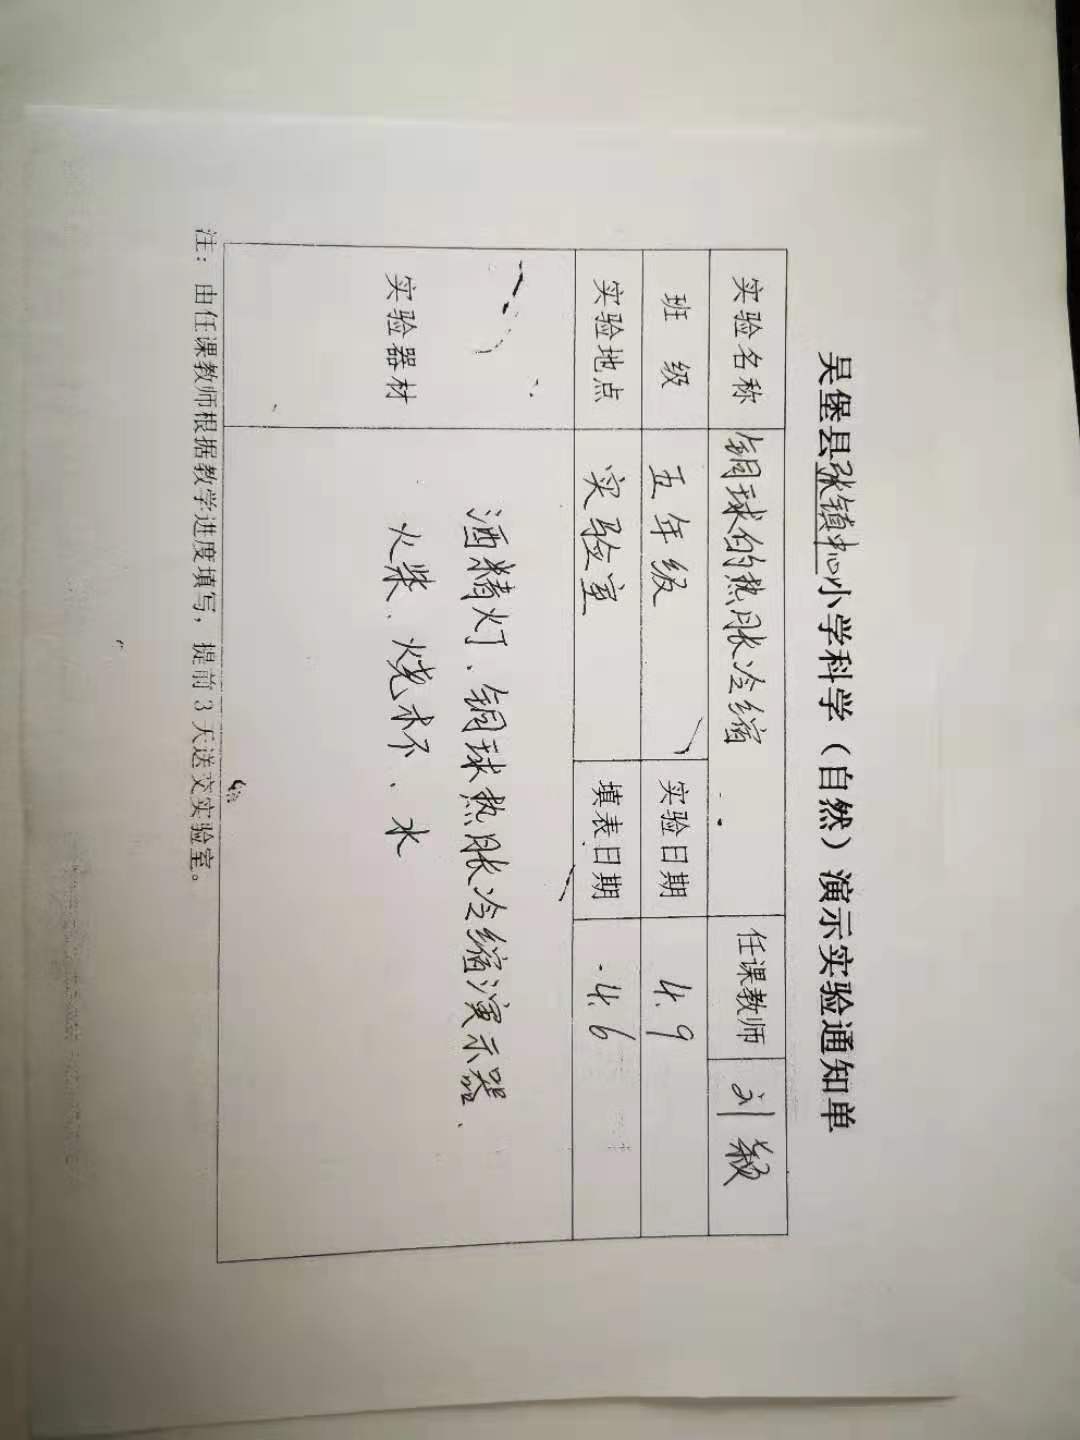 吴堡县张镇中心小学科学（自然）演示实验通知单
实验名称 铜球的热胀冷缩 任课教师 刘颖
班 级 五年级 实验日期 4.9
实验地点 实验室 填表日期 4.6
实验器材 酒精灯、铜球热胀冷缩演示器、
火柴、烧杯、水
注：由任课教师根据教学进度填写，提前3天送交实验室。